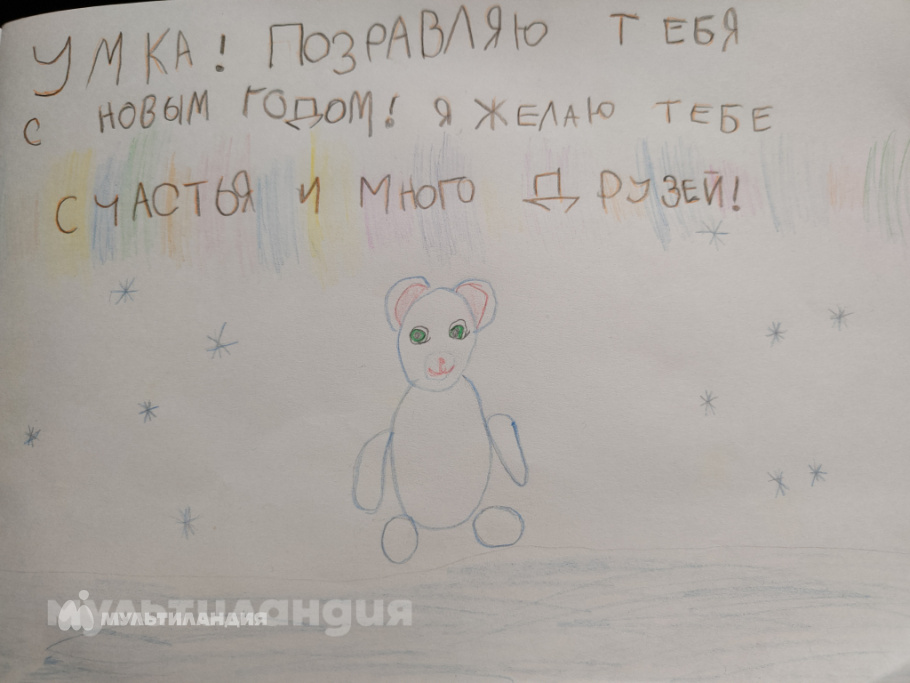 УМКА! ПОЗРАВЛЯЮ ТЕБЯ
С НОВЫМ ГОДОМ! Я ЖЕЛАЮ ТЕБЕ
СЧАСТЬЯ И МНОГО ДРУЗЕЙ!
мультиландия
МУЛЬТИЛАНДИЯ